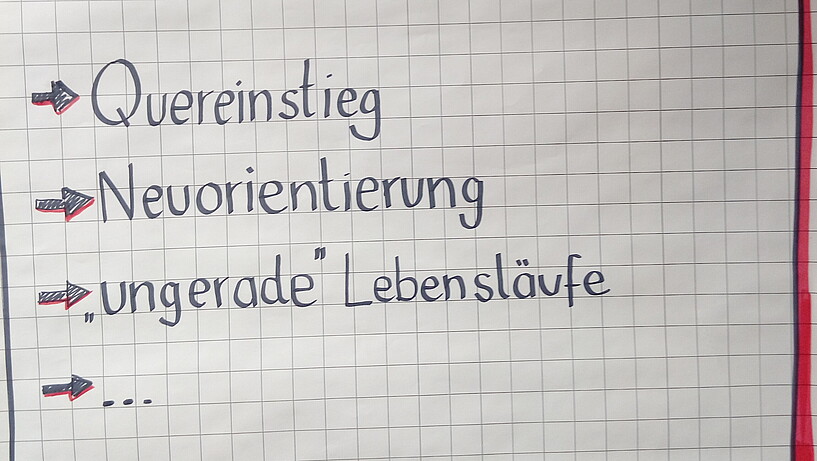 Quereinstieg
Neuorientierung
„ungerade” Lebensläufe
...